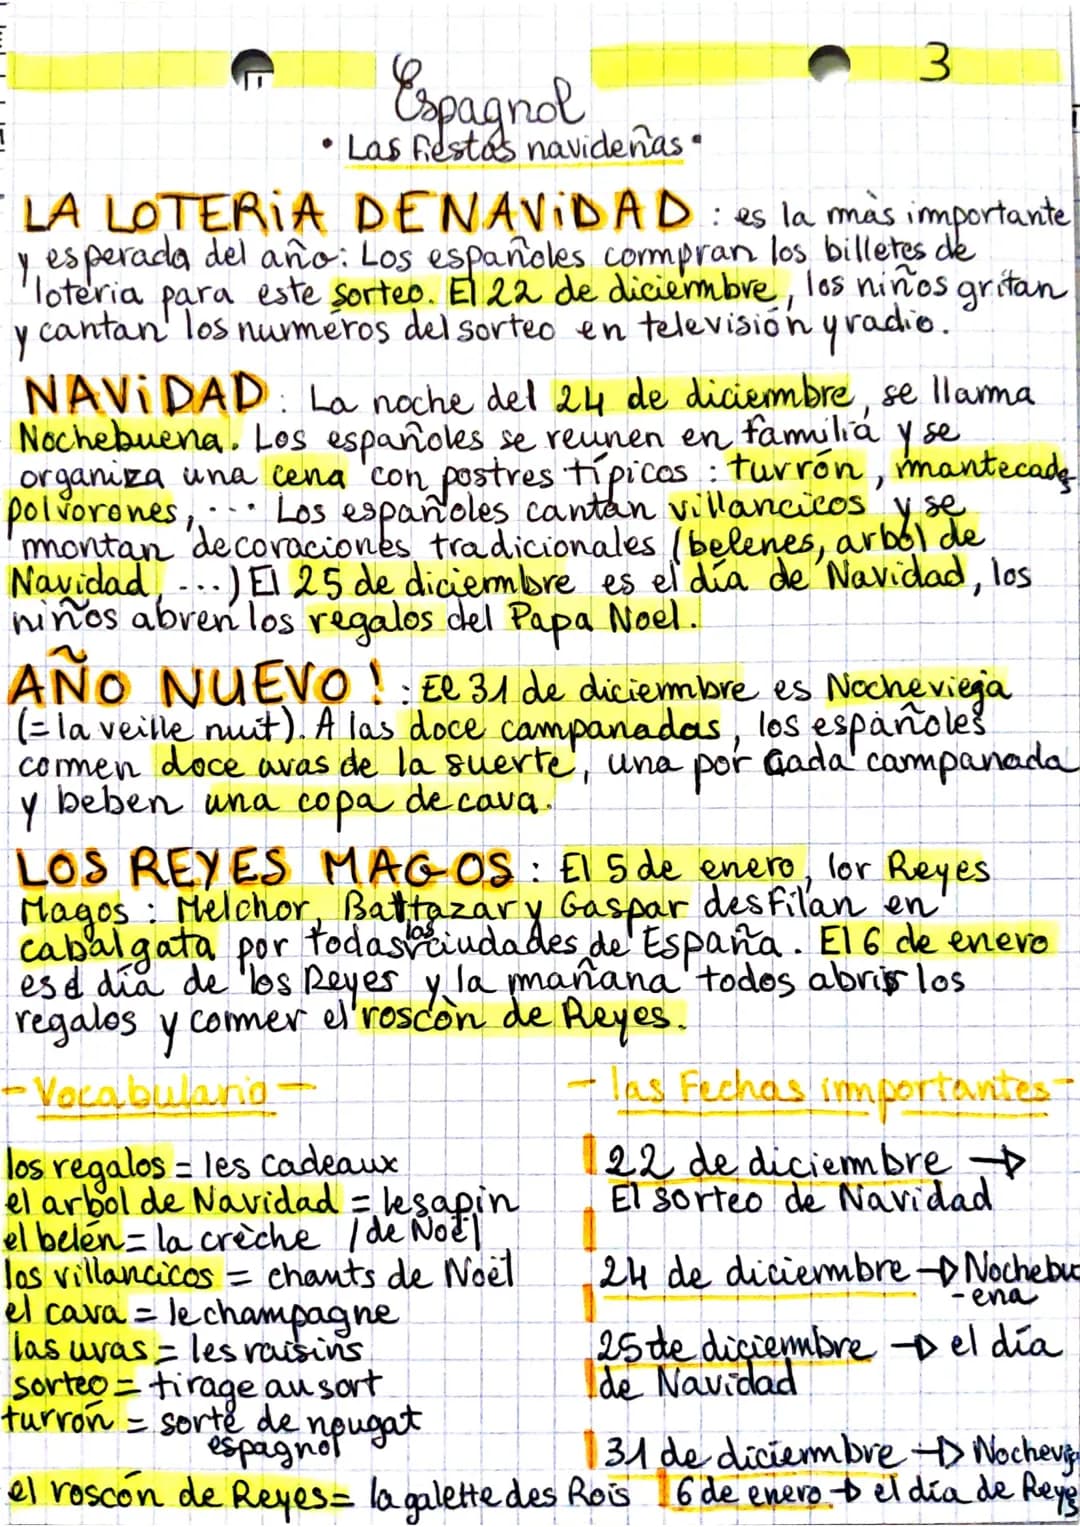 3
Espagnol
• Las fiestas navideñas •
LA LOTERiA DE NAViDAD : es la màs importante
y esperada del año: Los españoles compran los billetes de
loteria para este sorteo. El 22 de diciembre, los niños gritan
y cantan los numéros del sorteo en televisión y radio.
NAViDAD : La noche del 24 de diciembre, se llama
Nochebuena. Los españoles se reunen en familia y se
organiza una cena con postres típicos : turrón, mantecados
polvorones, ... Los españoles cantan villancicos y se
montan decoraciones tradicionales (belenes, arbol de
Navidad, ...) El 25 de diciembre es el día de Navidad, los
niños abren los regalos del Papa Noel.
AÑO NUEVO ! : El 31 de diciembre es Nocheviega
(= la veille nuit). A las doce campanadas, los españoles
comen doce uvas de la suerte, una por cada campanada
y beben una copa de cava.
LOS REYES MAGOS : El 5 de enero, lor Reyes
Magos : Melchor, Battazar y Gaspar desfilan en
cabalgata por todas las ciudades de España. El 6 de enero
es el día de los Reyes y la mañana todos abris los
regalos y comer el roscòn de Reyes.
- Vocabulario -
los regalos = les cadeaux
el arbol de Navidad = le sapin
/de Noël
el belén = la crèche
los villancicos = chants de Noël
el cava = le champagne
las uvas = les raisins
sorteo = tirage au sort
turrón = sorte de nougat
espagnol
el roscón de Reyes = la galette des Rois
- las Fechas importantes -
22 de diciembre →
El sorteo de Navidad
24 de diciembre → Nochebu
-ena
25 de diciembre → el día
de Navidad
31 de diciembre → Nochevie
6 de enero → el día de Reyes